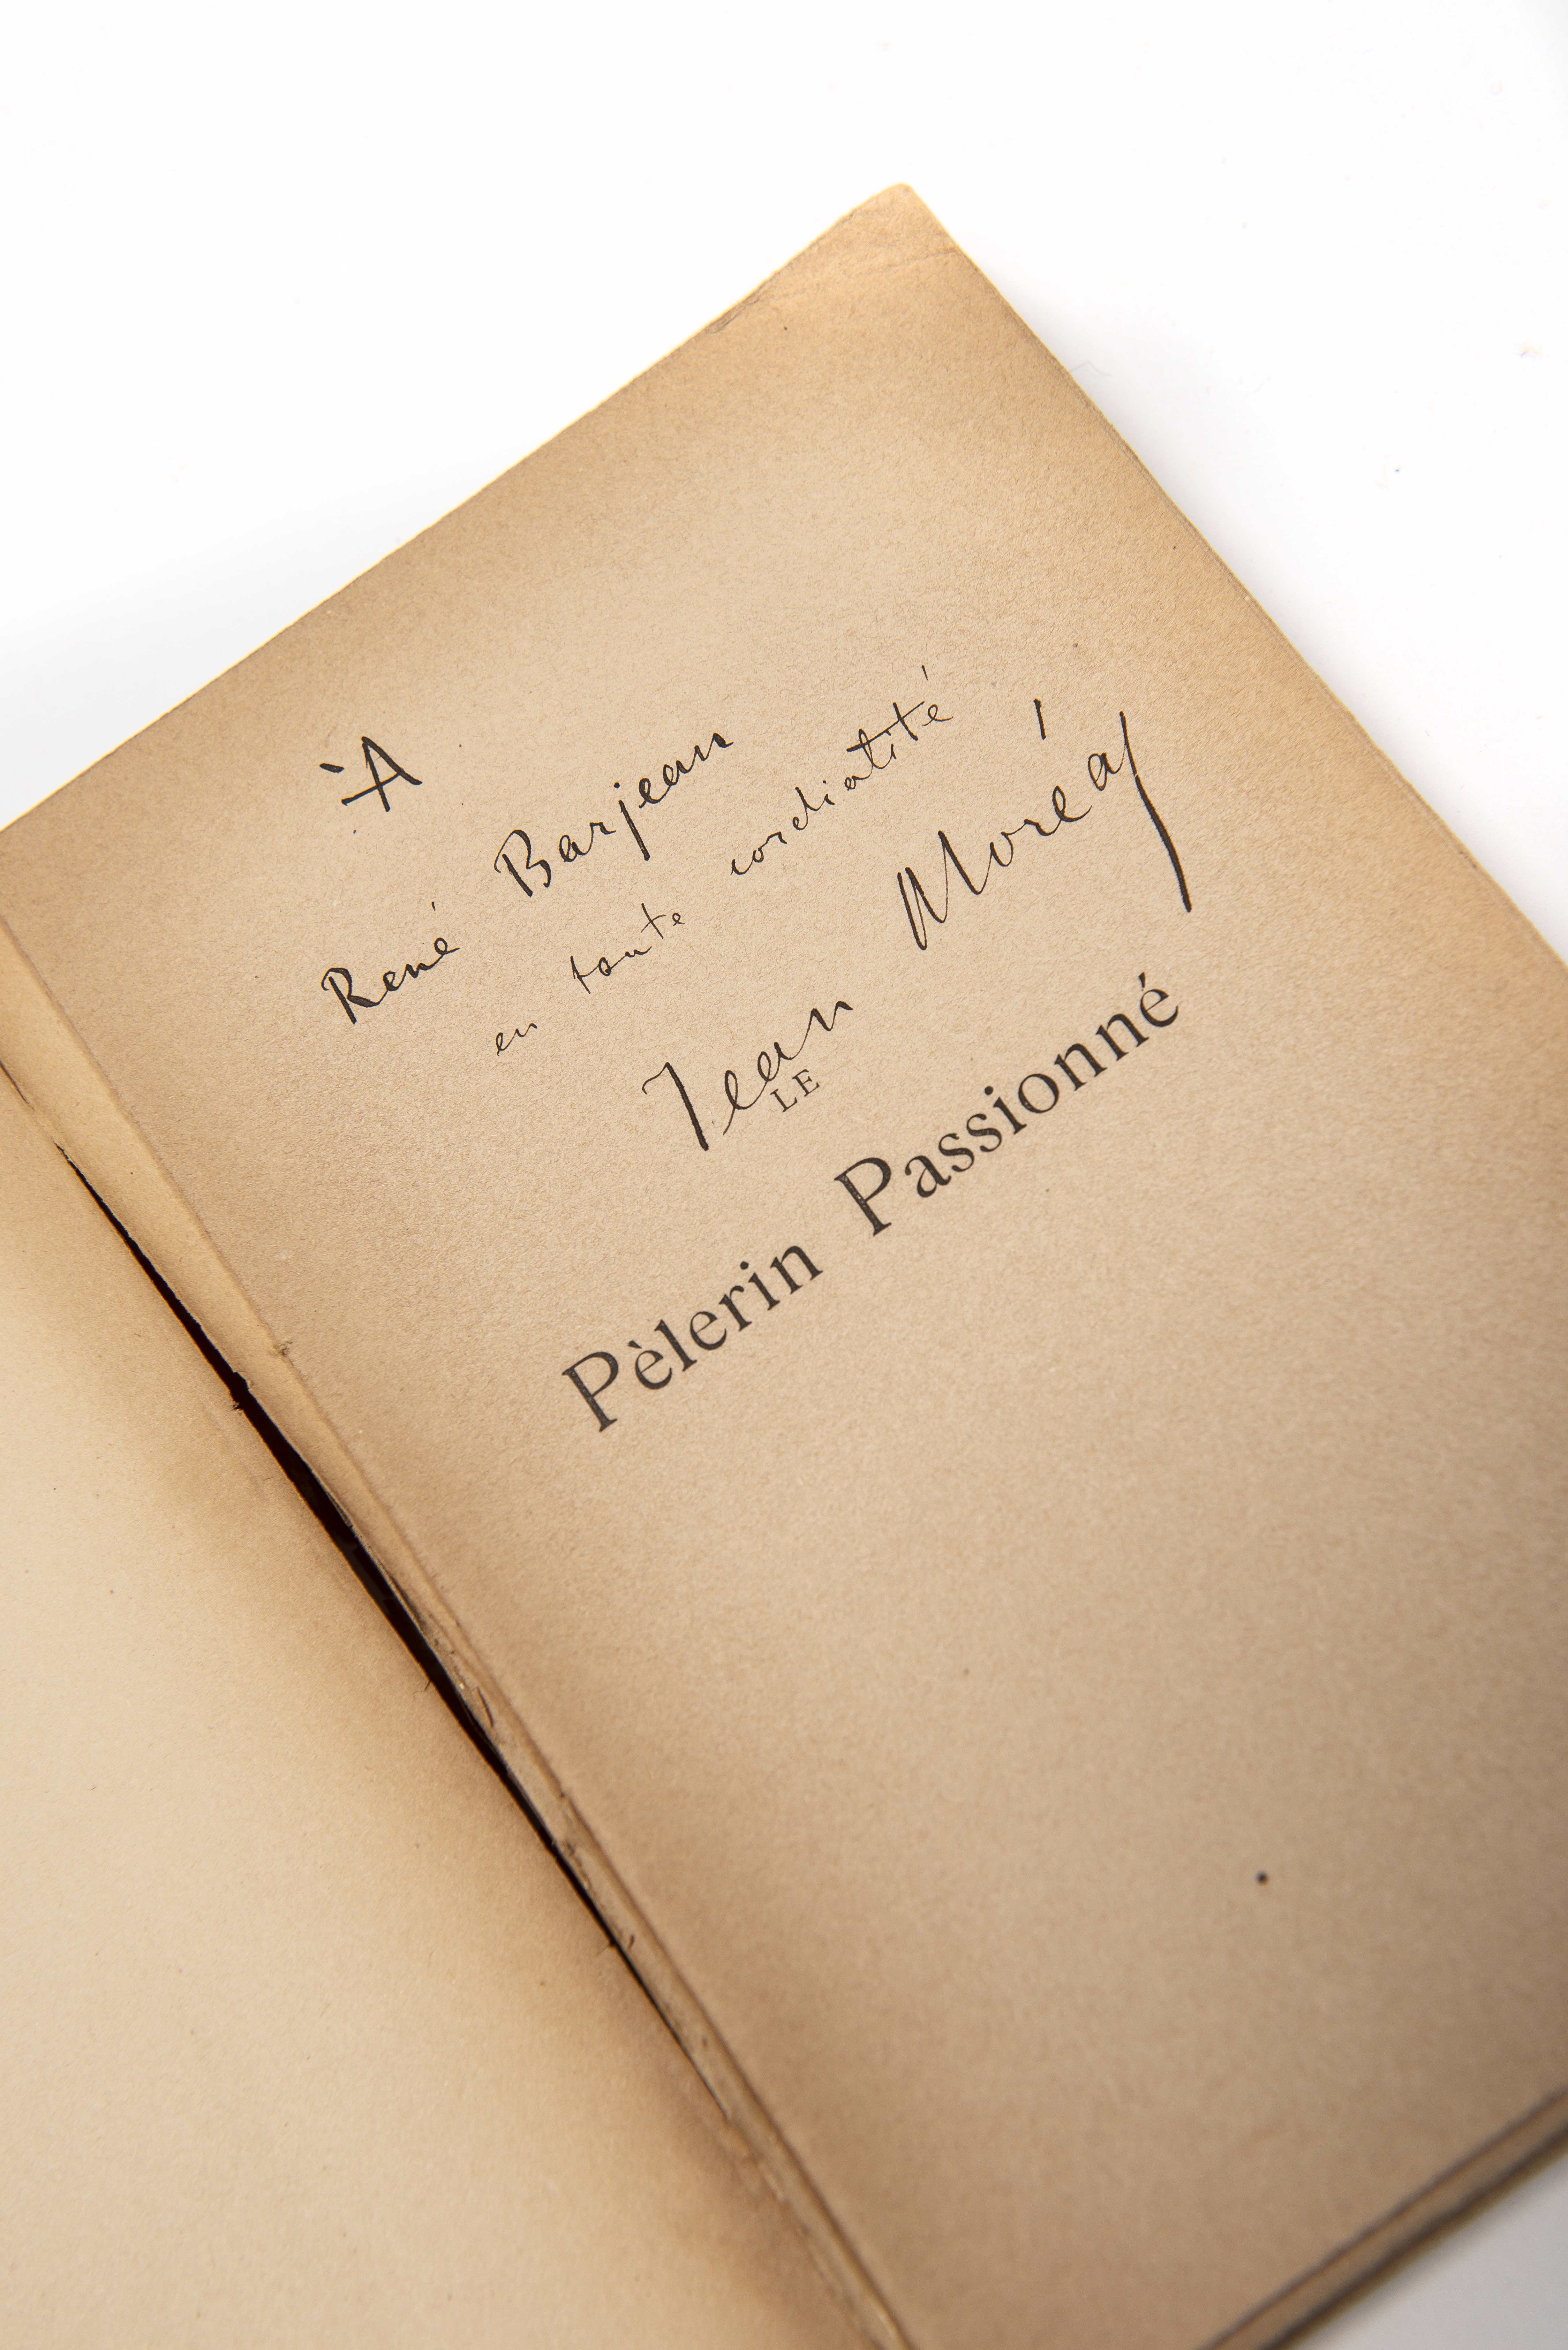 À
René Barjean
en toute cordialité
Jean Moréas
LE
Pèlerin Passionné